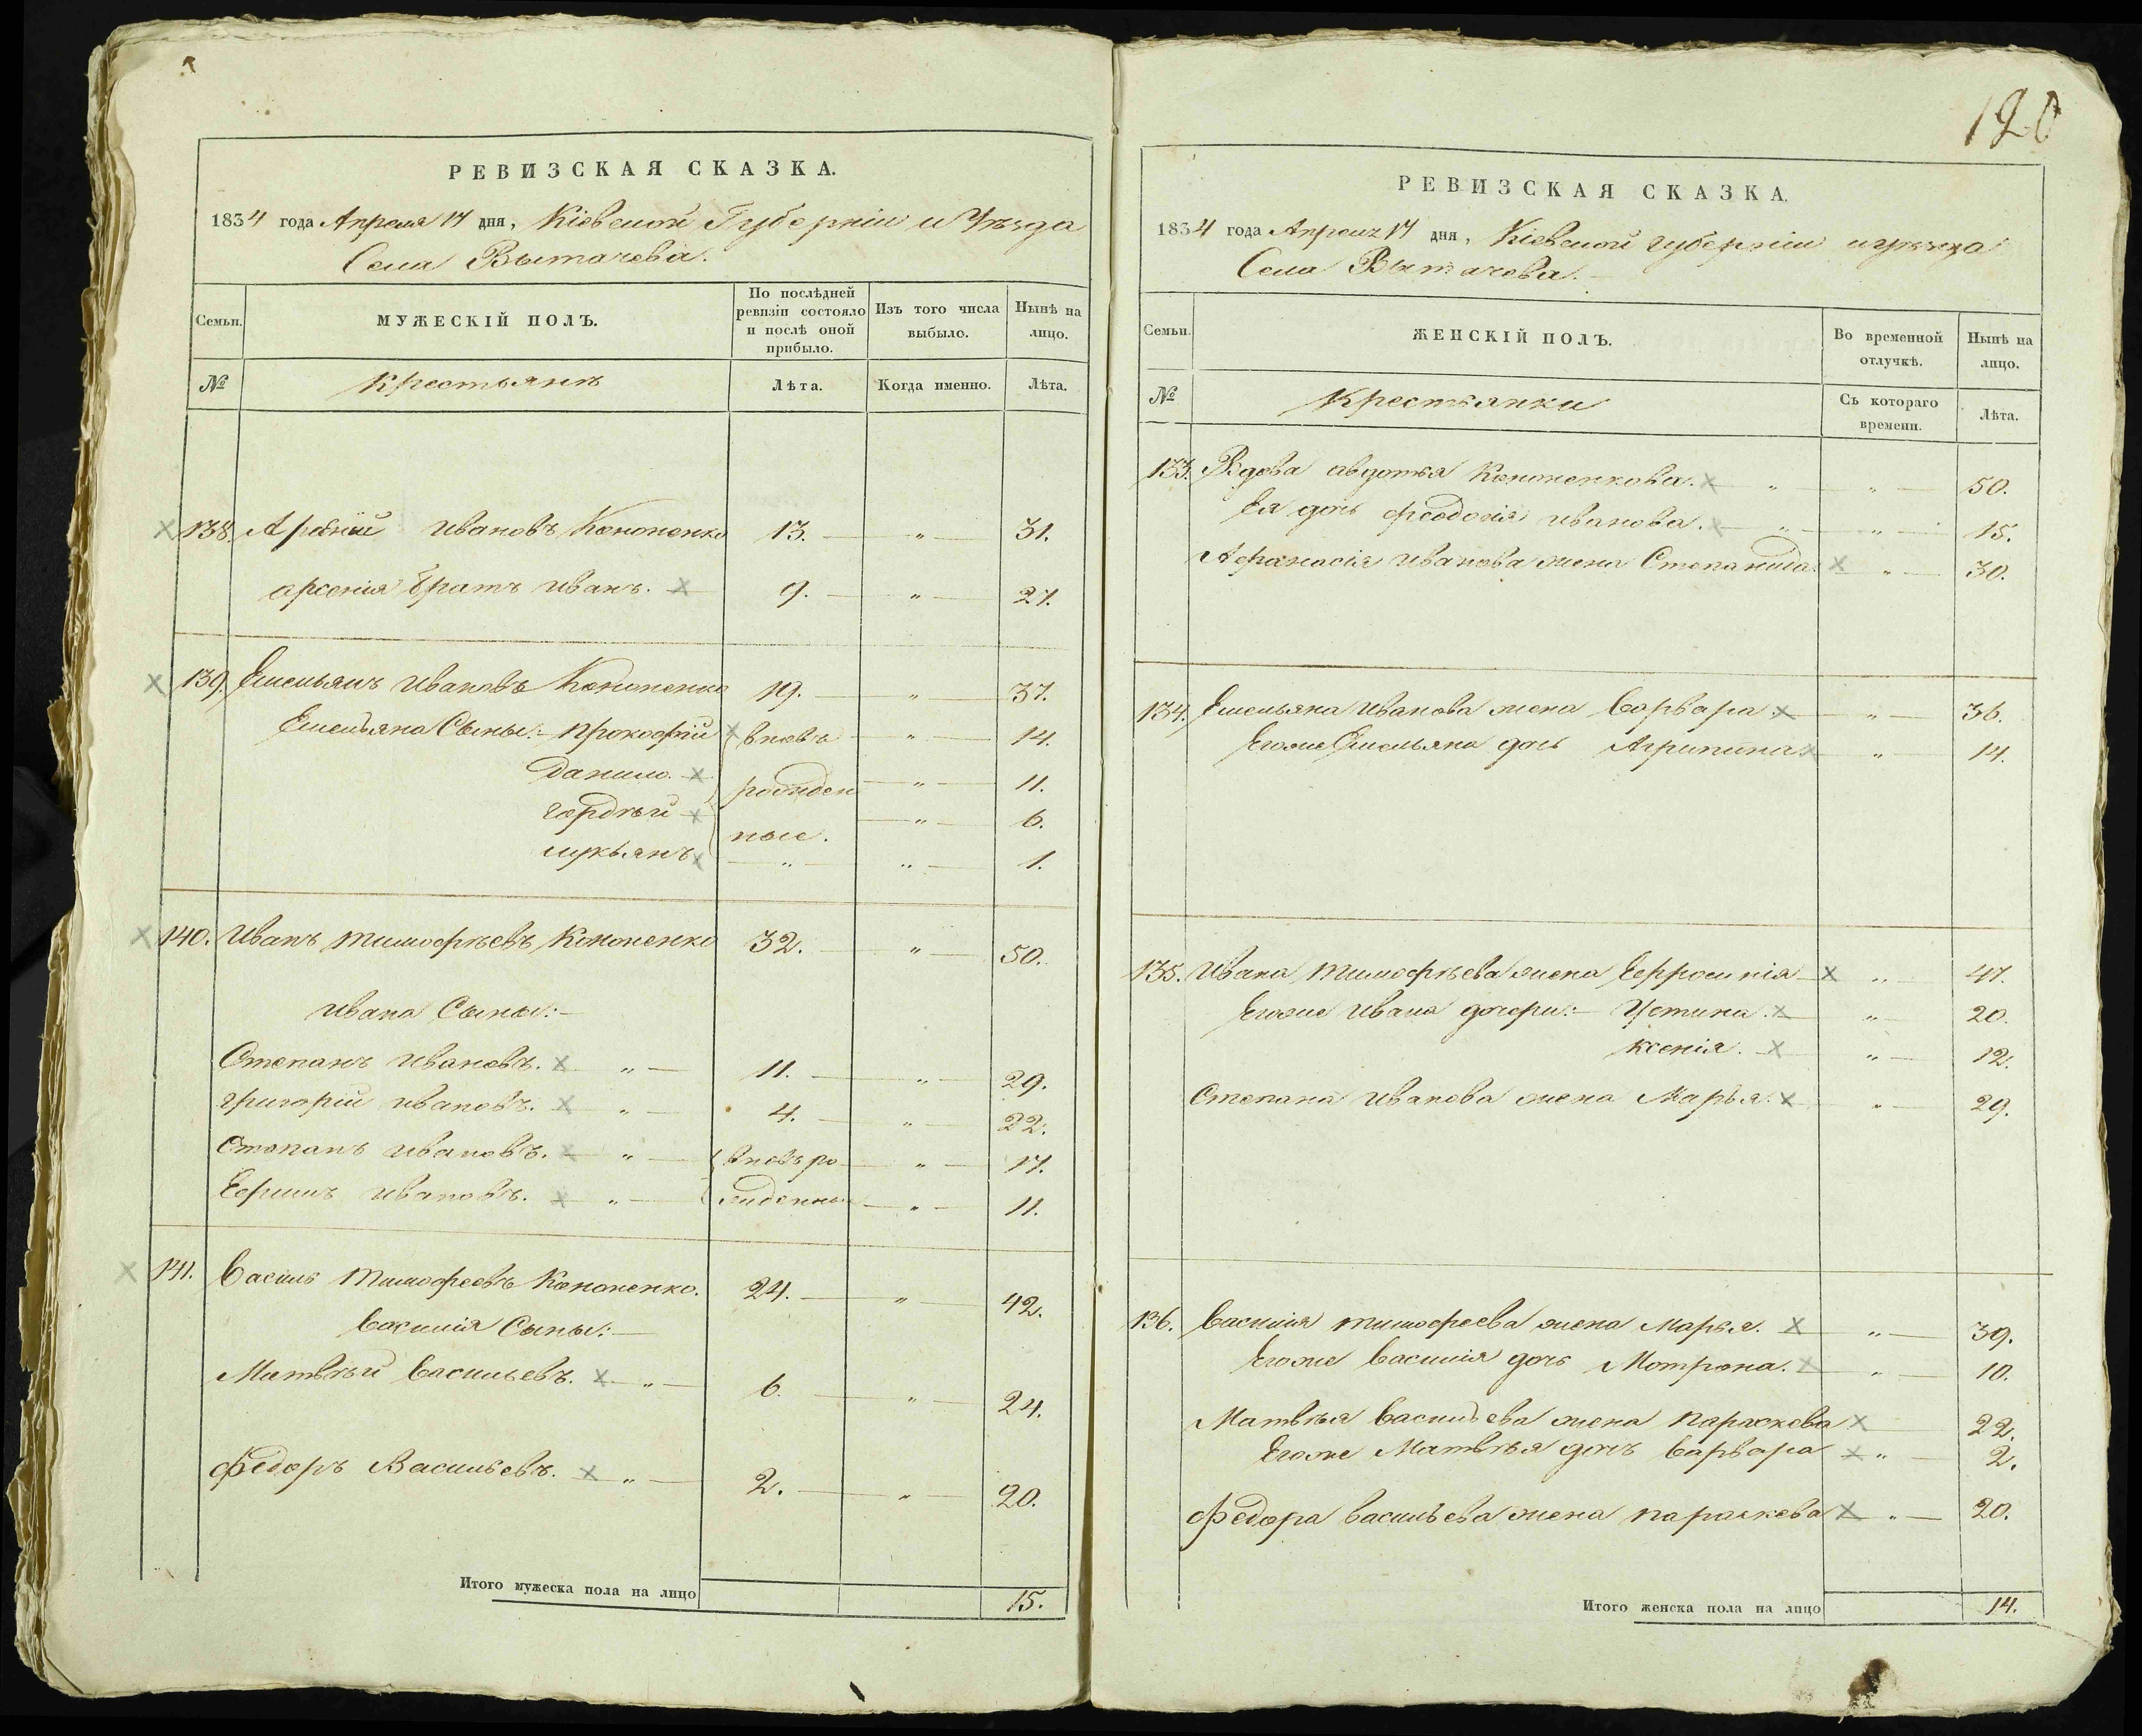 РЕВИЗСКАЯ СКАЗКА.
1834 года Апреля 17 дня, Кіевской Губерніи и Уѣзда
Села Вытачева.
Семьи. МУЖЕСКІЙ ПОЛЪ. По послѣдней ревизіи состояло и послѣ оной прибыло. Изъ того числа выбыло. Нынѣ на лицо.
№ крестьянъ Лѣта. Когда именно. Лѣта.
138. Ивановъ Кононенко 13. — „ — 31.
арсенія братъ иванъ. 9. — „ — 27.
139. Емельянъ Ивановъ Кононенко 19. — „ — 37.
Емельяна Сыны:— прокофій вновь — „ — 14.
данило. рожден — „ — 11.
гордѣй — „ — 6.
лукьянъ ные. — „ — „ — 1.
140. Иванъ тимофѣевъ Кононенко 32. — „ — 50.
ивана Сыны:—
Степанъ ивановъ. „ — 11. — „ — 29.
григорій ивановъ. „ — 4. — „ — 22.
Степанъ ивановъ. „ — вновь ро — „ — 17.
Ефимъ ивановъ. „ — жденны — „ — 11.
141. Василь тимофеевъ Кононенко. 24. — „ — 42.
василія Сыны:—
Матвѣй васильевъ. „ — 6. — „ — 24.
федоръ Васильевъ. „ — 2. — „ — 20.
Итого мужеска пола на лицо 15.
120
РЕВИЗСКАЯ СКАЗКА.
1834 года Апреля 17 дня, Кіевской губерніи и уѣзда
Села Вытачева.—
Семьи. ЖЕНСКІЙ ПОЛЪ. Во временной отлучкѣ. Нынѣ на лицо.
№ Крестьянки Съ котораго времени. Лѣта.
133. Вдова авдотья Кононенкова. „ — „ — 50.
Ея дочь феодосія иванова. — „ — „ — 15.
Афанасія иванова жена Степанида. „ — 30.
134. Емельяна иванова жена варвара. — „ — 36.
Егоже Емельяна дочь Агрипина — „ — 14.
135. Ивана тимофѣева жена Ефросинія „ — 47.
Егоже ивана дочери:— Устина. „ — 20.
ксенія. „ — 12.
Степана иванова жена Марья. „ — 29.
136. василія тимофеева жена марья. „ — 39.
Егоже василія дочь Мотрона. „ — 10.
Матвѣя васильева жена параскева 22.
Егоже Матвѣя дочь варвара „ — 2.
Федора васильева жена параскева „ — 20.
Итого женска пола на лицо 14.